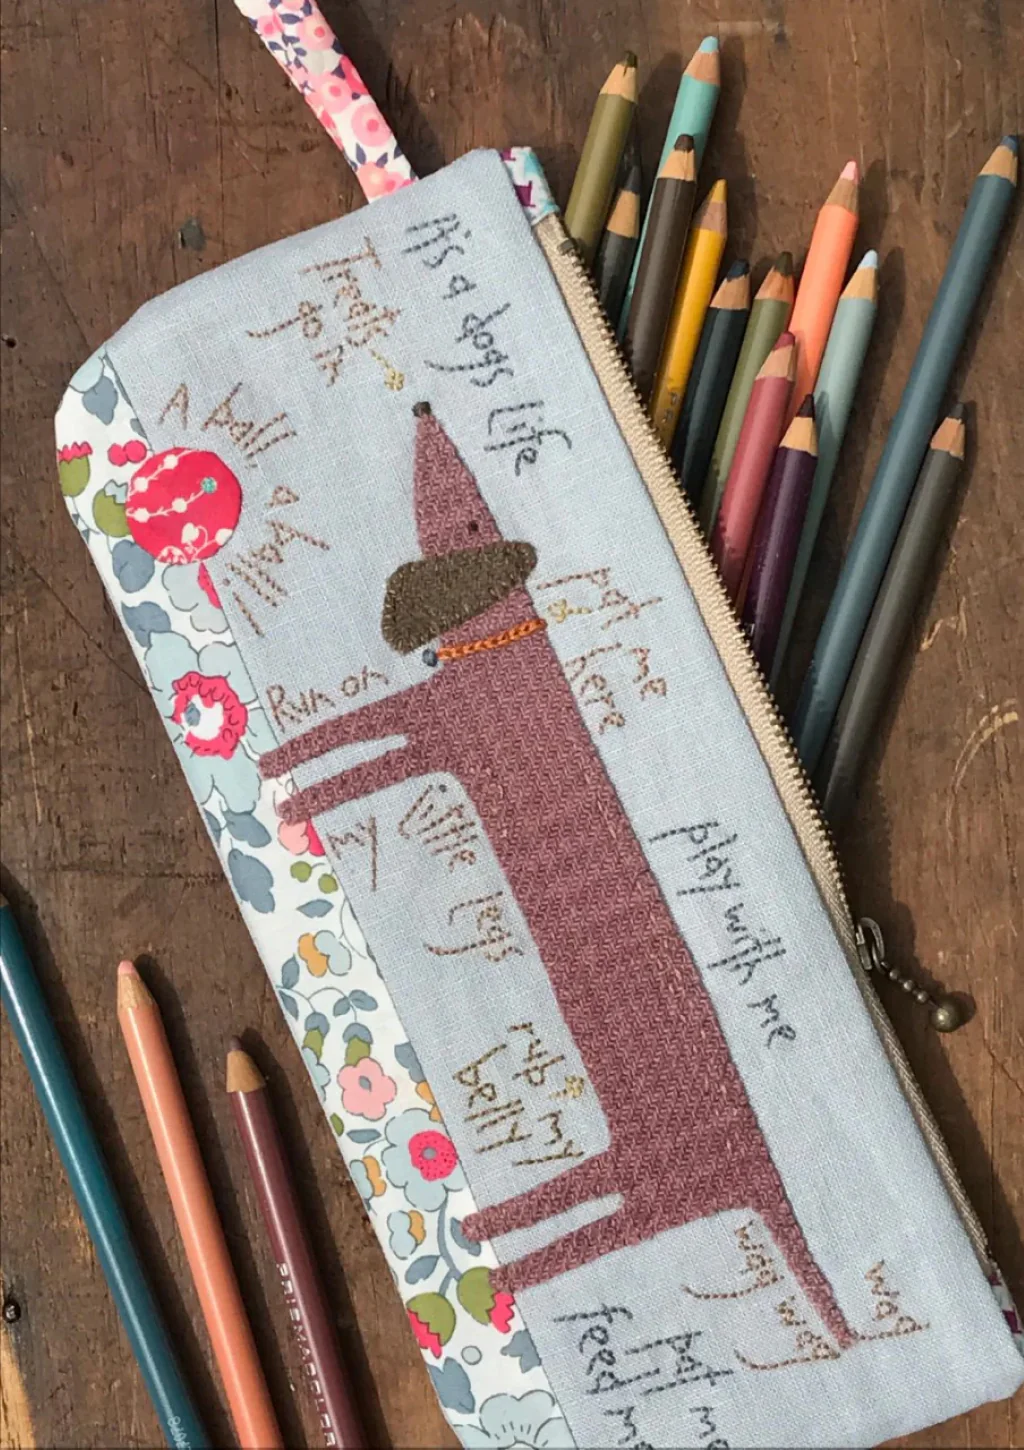 It's a dogs life
Treats
go in
A ball
a ball!!
pat me
here
Run on
my little legs
play with me
rub my
belly
wag
wag wag
pat me
feed m
PRISMACOLOR